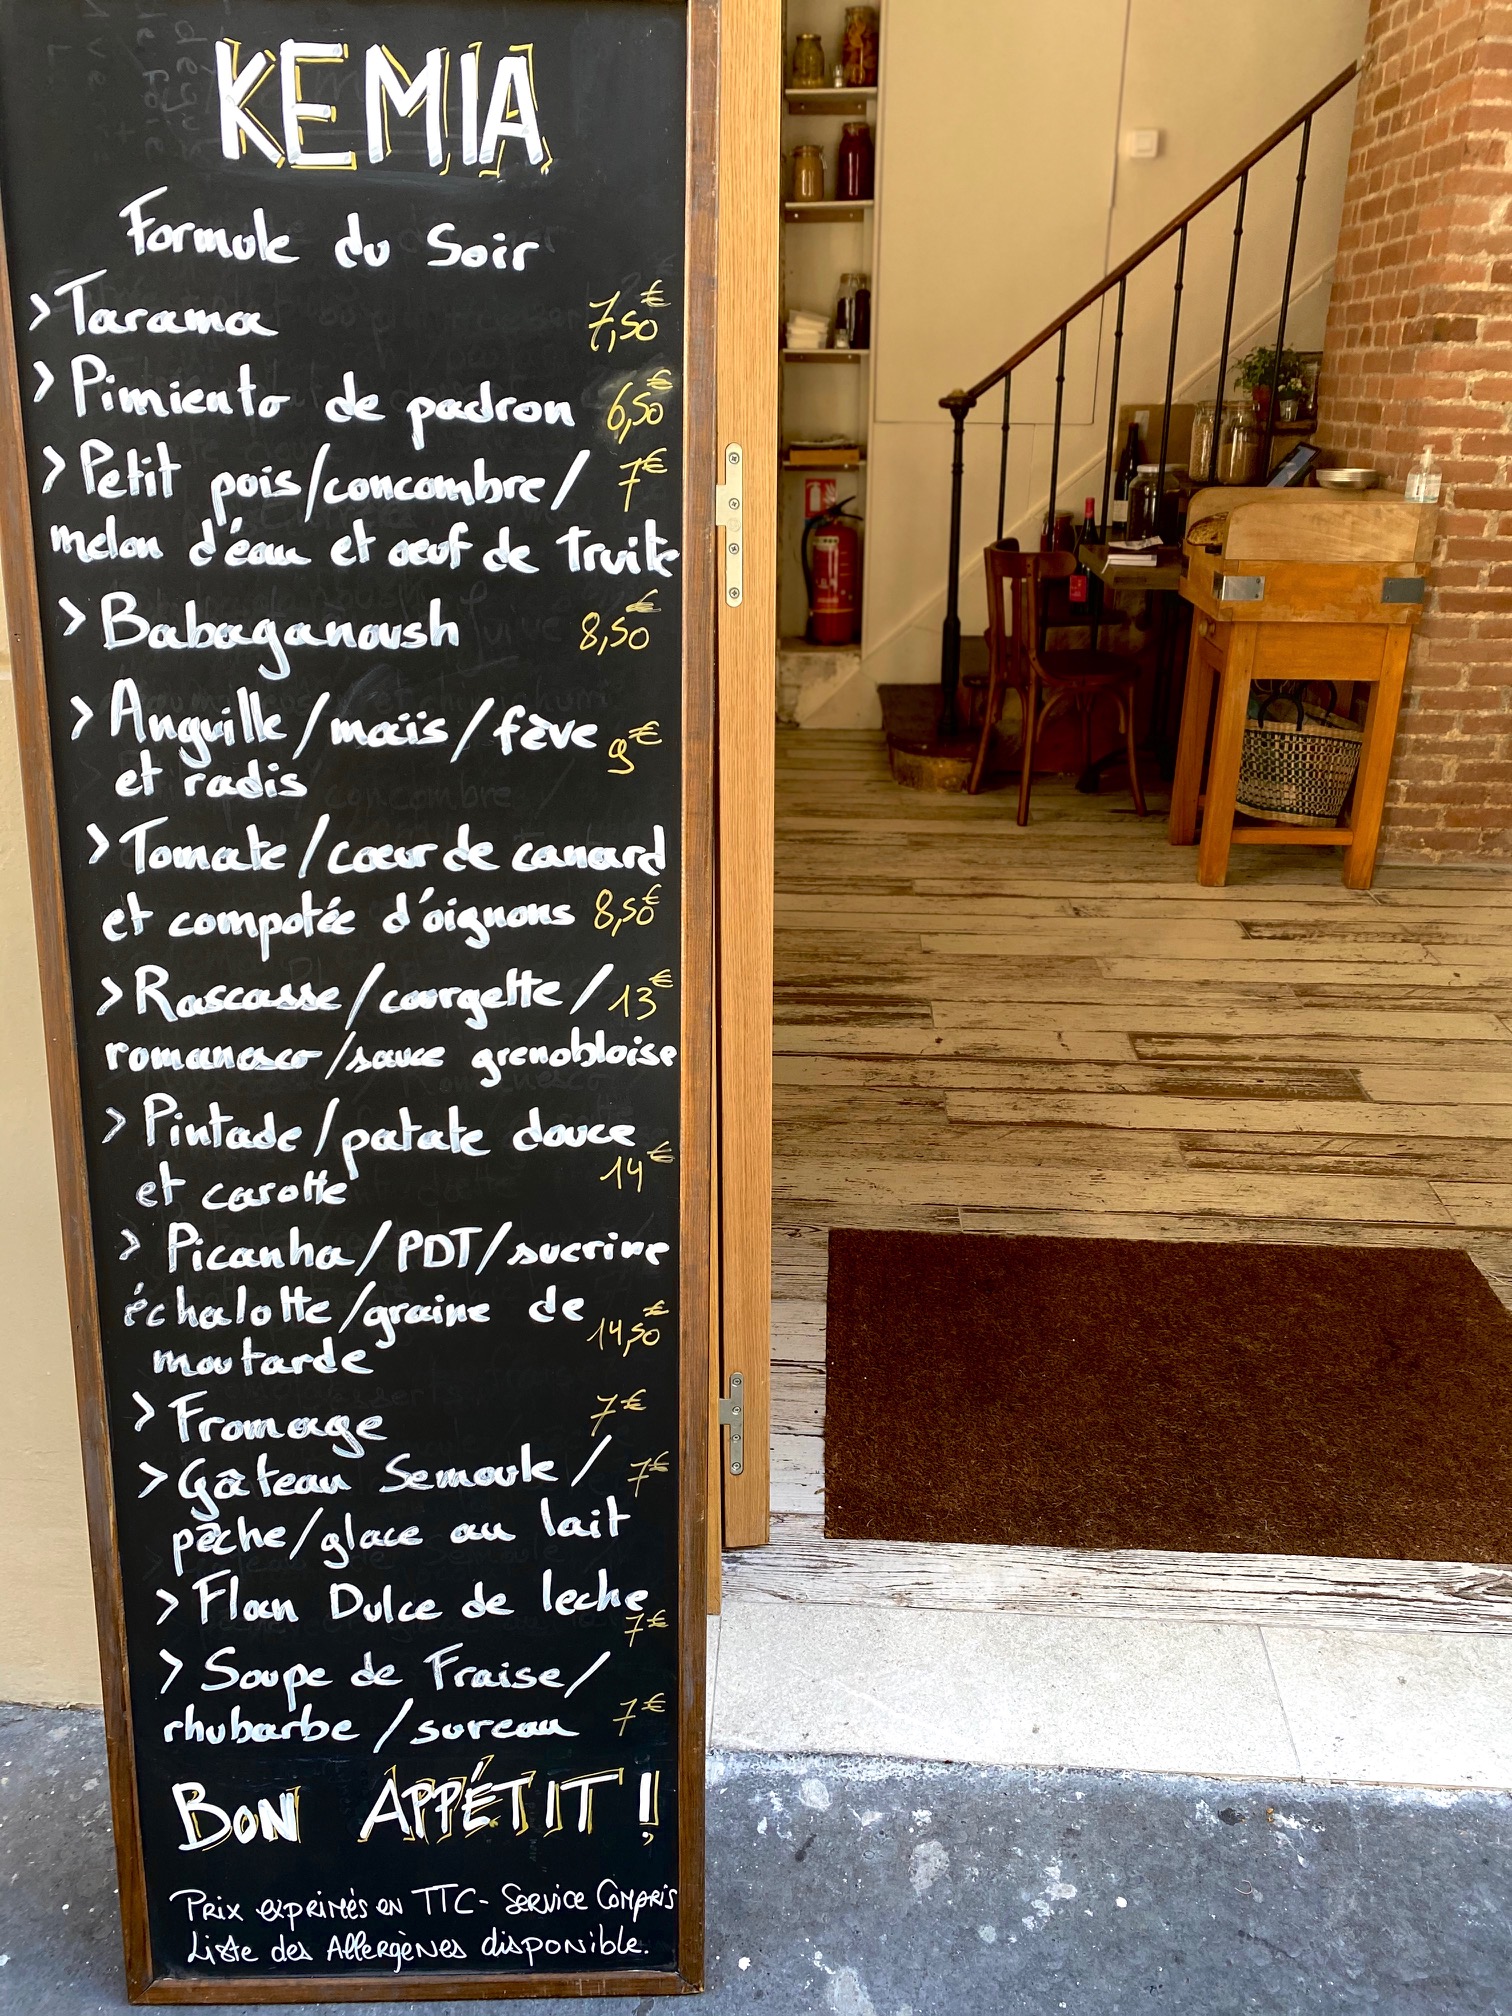 KEMIA
Formule du Soir
> Tarama 7,50€
> Pimiento de padron 6,50€
> Petit pois/concombre/ 7€
melon d'eau et oeuf de truite
> Babaganoush 8,50€
> Anguille/maïs/fève 9€
et radis
> Tomate/cœur de canard
et compotée d'oignons 8,50€
> Rascasse/courgette/ 13€
romanesco/sauce grenobloise
> Pintade/patate douce
et carotte 14€
> Picanha/PDT/sucrine
échalotte/graine de 14,50€
moutarde
> Fromage 7€
> Gâteau Semoule/ 7€
pêche/glace au lait
> Flan Dulce de leche
7€
> Soupe de Fraise/
rhubarbe/sureau 7€
BON APPÉTIT!
Prix exprimés en TTC - Service Compris
Liste des Allergènes disponible.